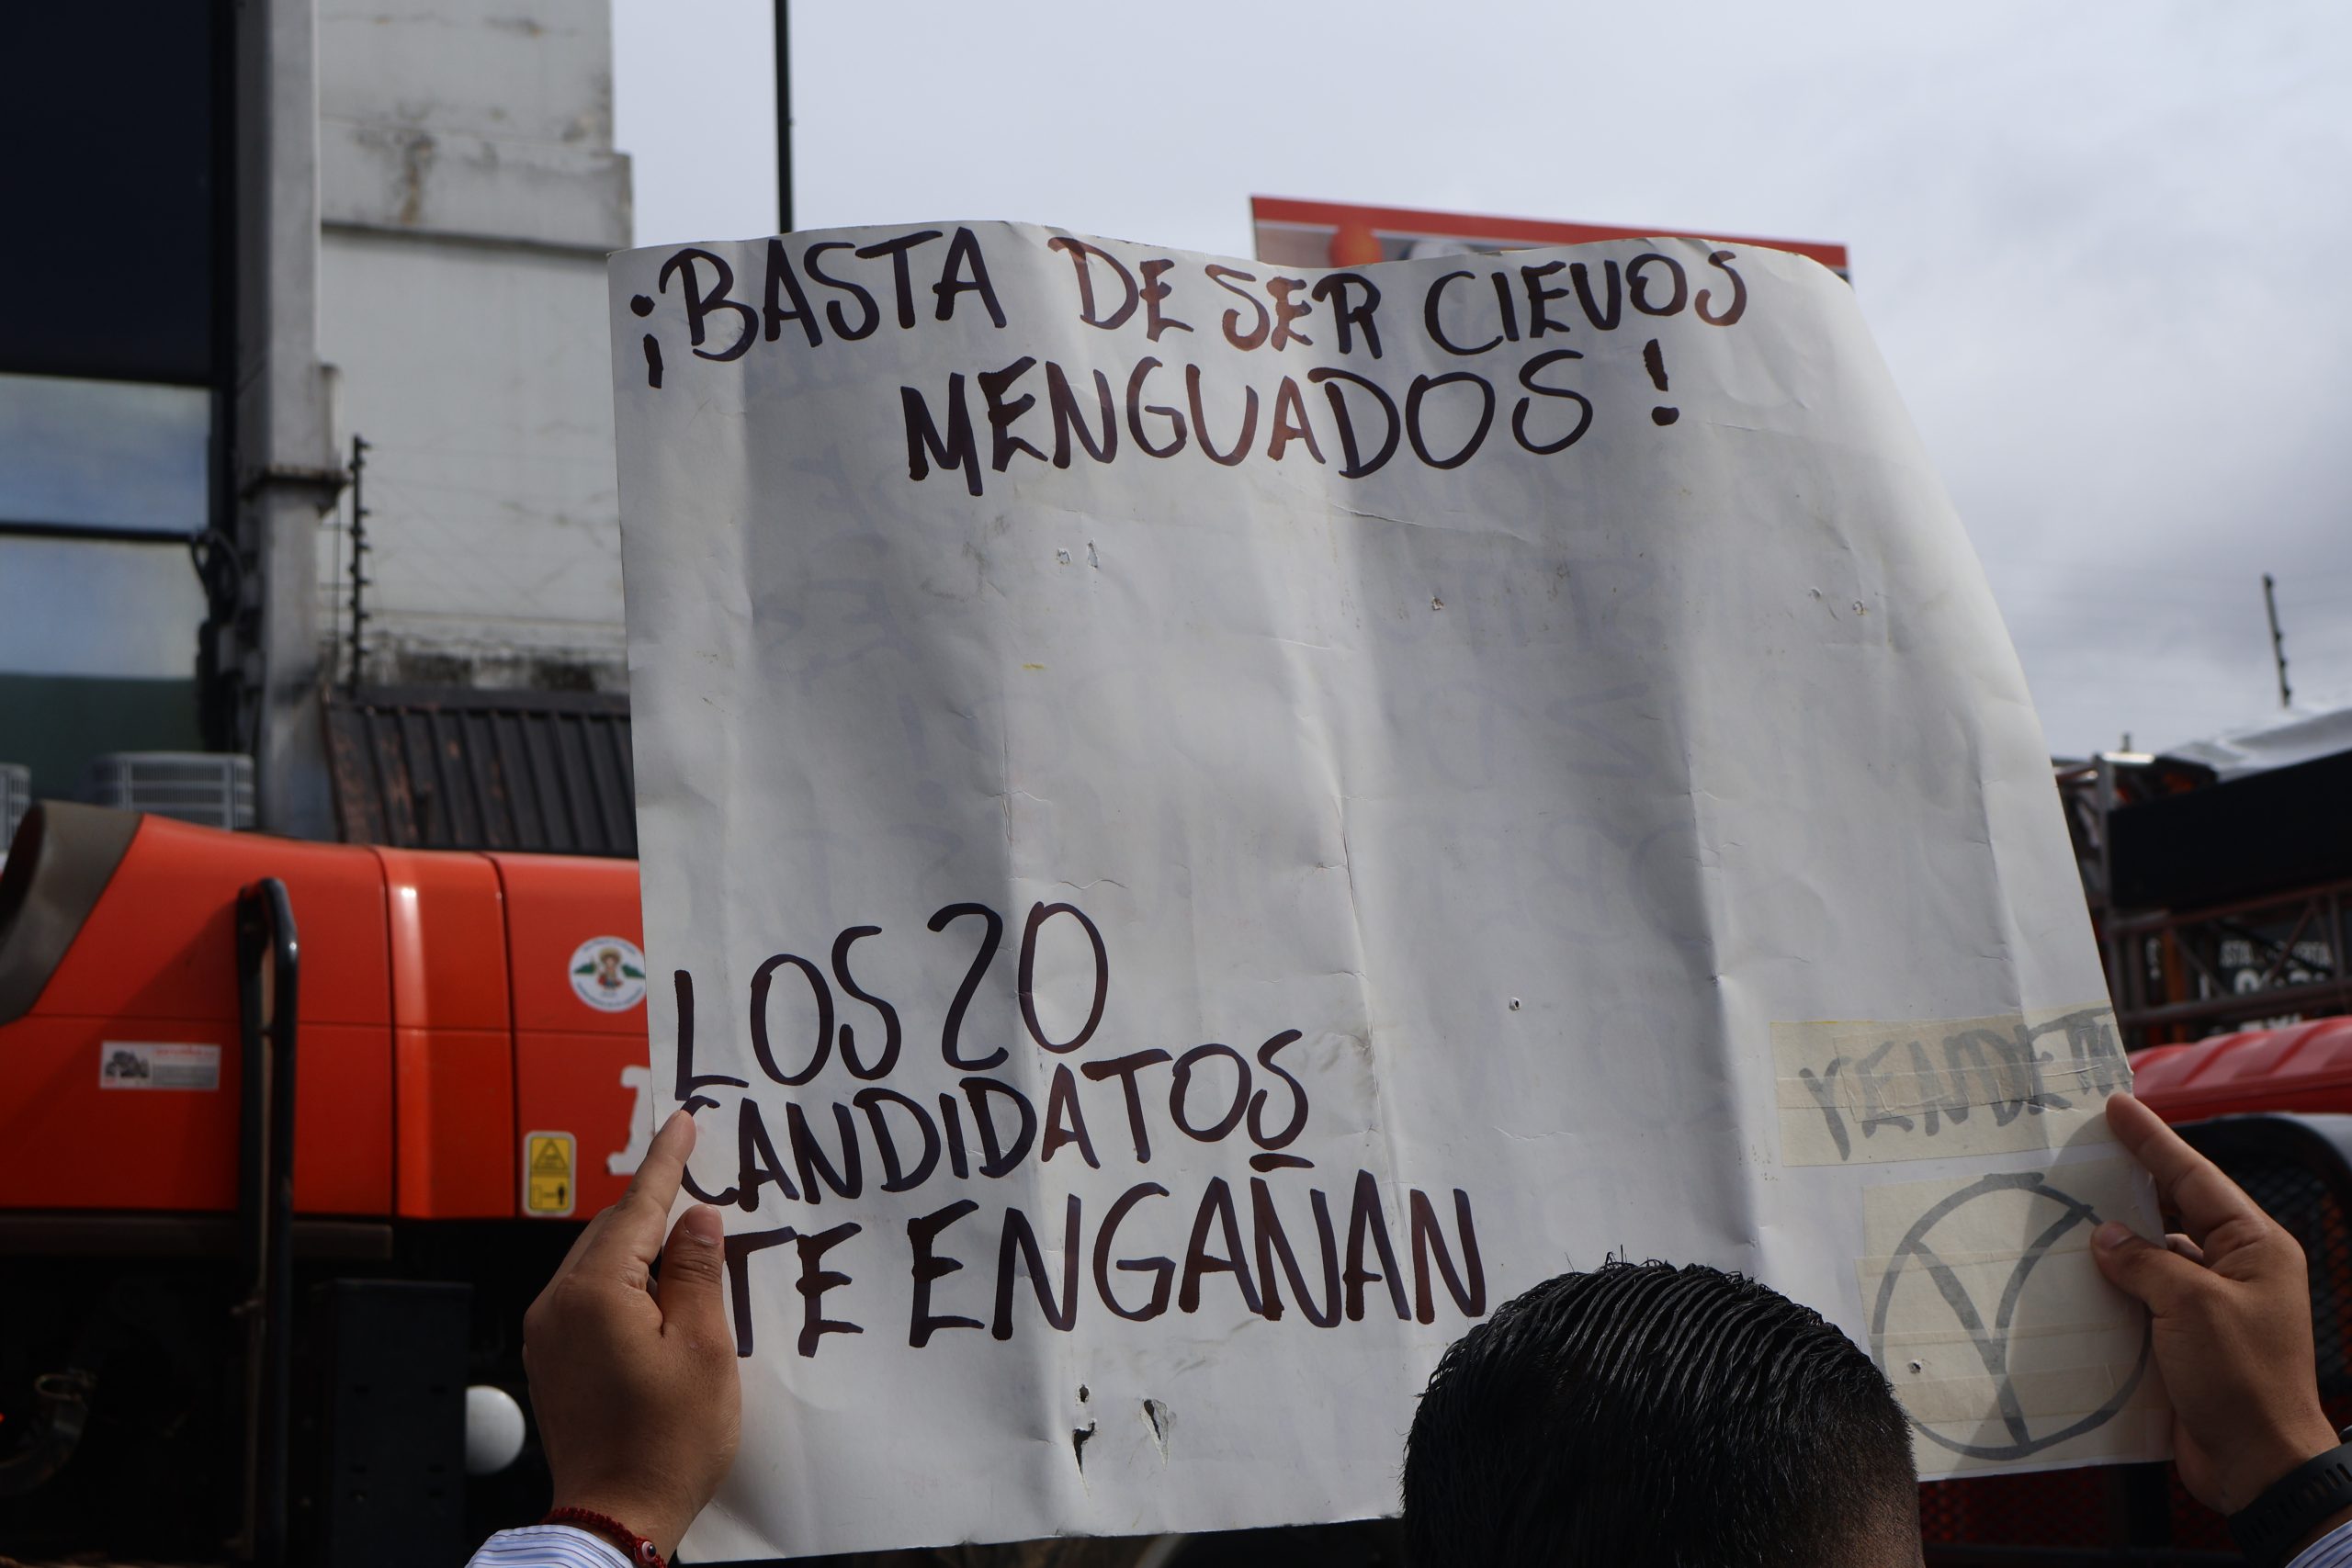 ¡BASTA DE SER CIEVOS
MENGUADOS!
LOS 20
CANDIDATOS
TE ENGAÑAN
VENDETTA
V